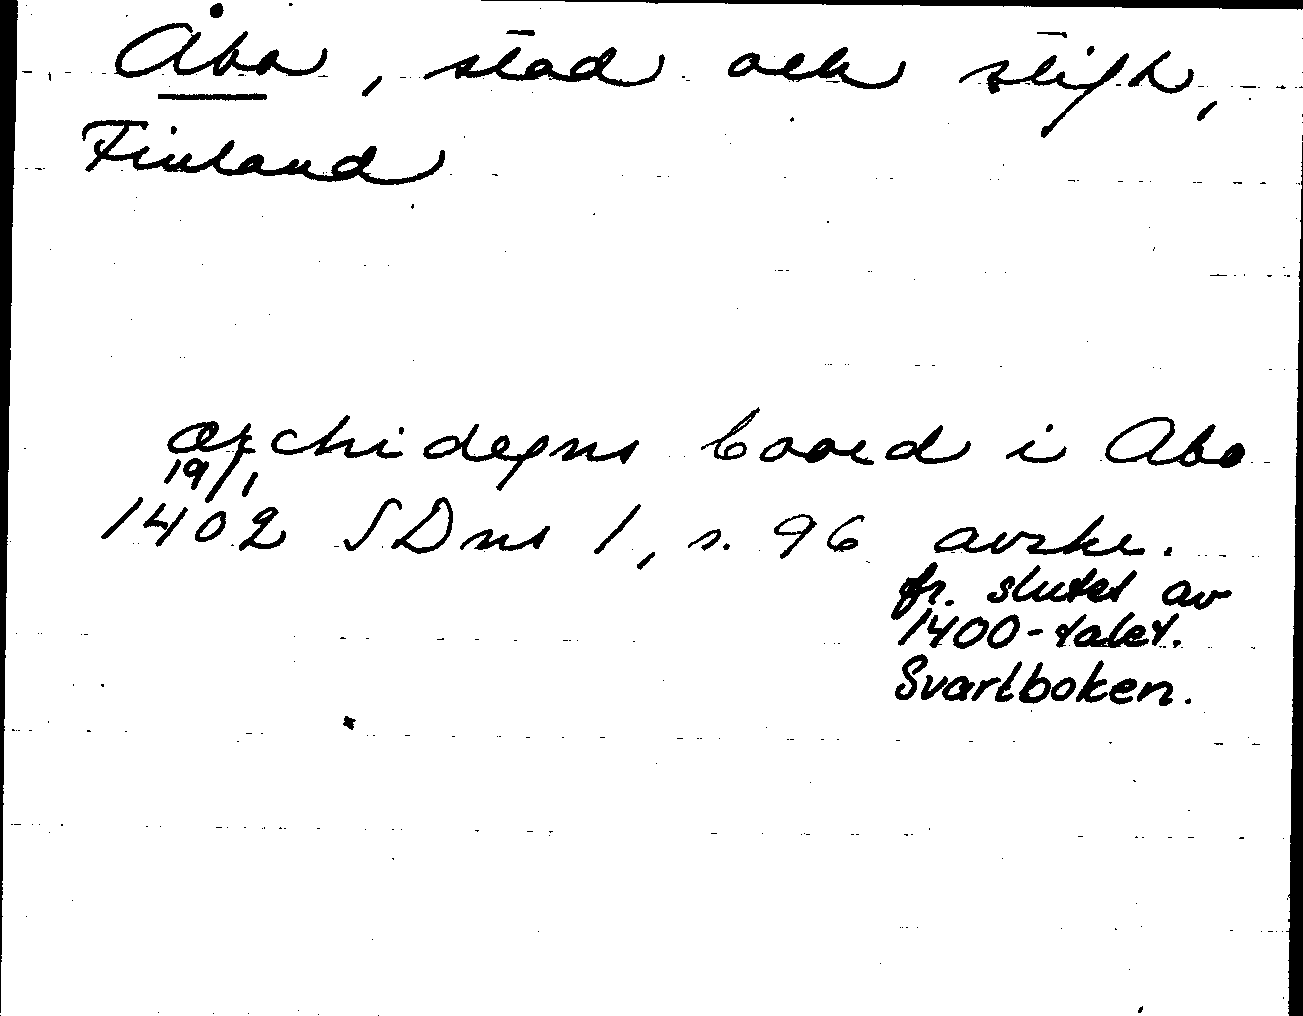 Åbo, stad och stift,
Finland
ærchidegns booed i Abo
19/1
1402 SDns 1, s. 96 avskr.
fr. slutet av
1400-talet.
Svartboken.